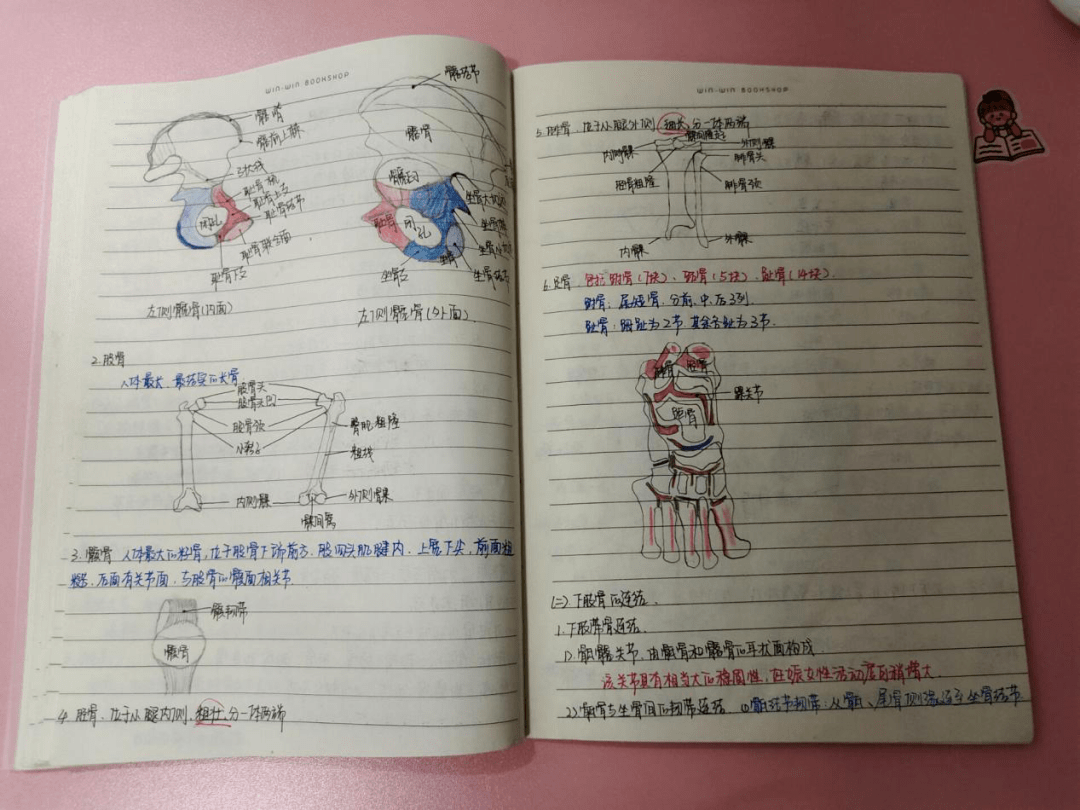 WIN-WIN BOOKSHOP
髂嵴
髂前上棘
弓状线
耻骨梳
耻骨结节
闭孔
耻骨联合面
耻骨下支
左侧髋骨(内面)
髂结节
髂骨
髋臼
耻骨
闭孔
坐骨
坐骨支
坐骨结节
左侧髋骨(外面)
2.股骨
人体最大、最结实的长骨
股骨头
股骨头凹
股骨颈
小转子
臀肌粗隆
粗线
内侧髁
外侧髁
髁间窝
3.髌骨 人体最大的籽骨,位于股骨下端前方,股四头肌腱内,上宽下尖,前面粗
糙,后面有关节面,与股骨的髌面相关节
髌韧带
髌骨
4.胫骨:位于小腿内侧,粗壮,分一体两端
WIN-WIN BOOKSHOP
5.腓骨 位于小腿外侧,细长,分一体两端
内侧髁
外侧髁
腓骨头
胫骨粗隆
腓骨颈
内髁
外髁
6.足骨:包括跗骨(7块)、跖骨(5块)、趾骨(14块)。
跗骨:属短骨,分前、中、后3列.
趾骨:拇趾为2节,其余各趾为3节.
踝关节
(二)下肢骨的连结.
1.下肢带骨连结.
1)骶髂关节,由骶骨和髂骨的耳状面构成
该关节具有相当大的稳固性,在妊女性活动度可稍增大
2)骶骨与坐骨间的韧带连结.①骶结节韧带:从骶、尾骨侧缘连至坐骨结节